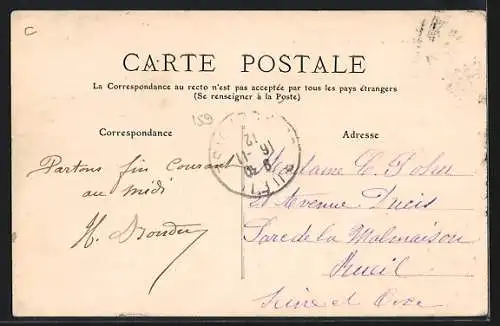 C
CARTE POSTALE
La Correspondance au recto n'est pas acceptée par tous les pays étrangers
(Se renseigner à la Poste)
159
Correspondance
Adresse
Partons fin courant
au midi
Madame
21 Avenue Ducis
Parc de la Malmaison
Rueil
Seine et Oise
16-11
12